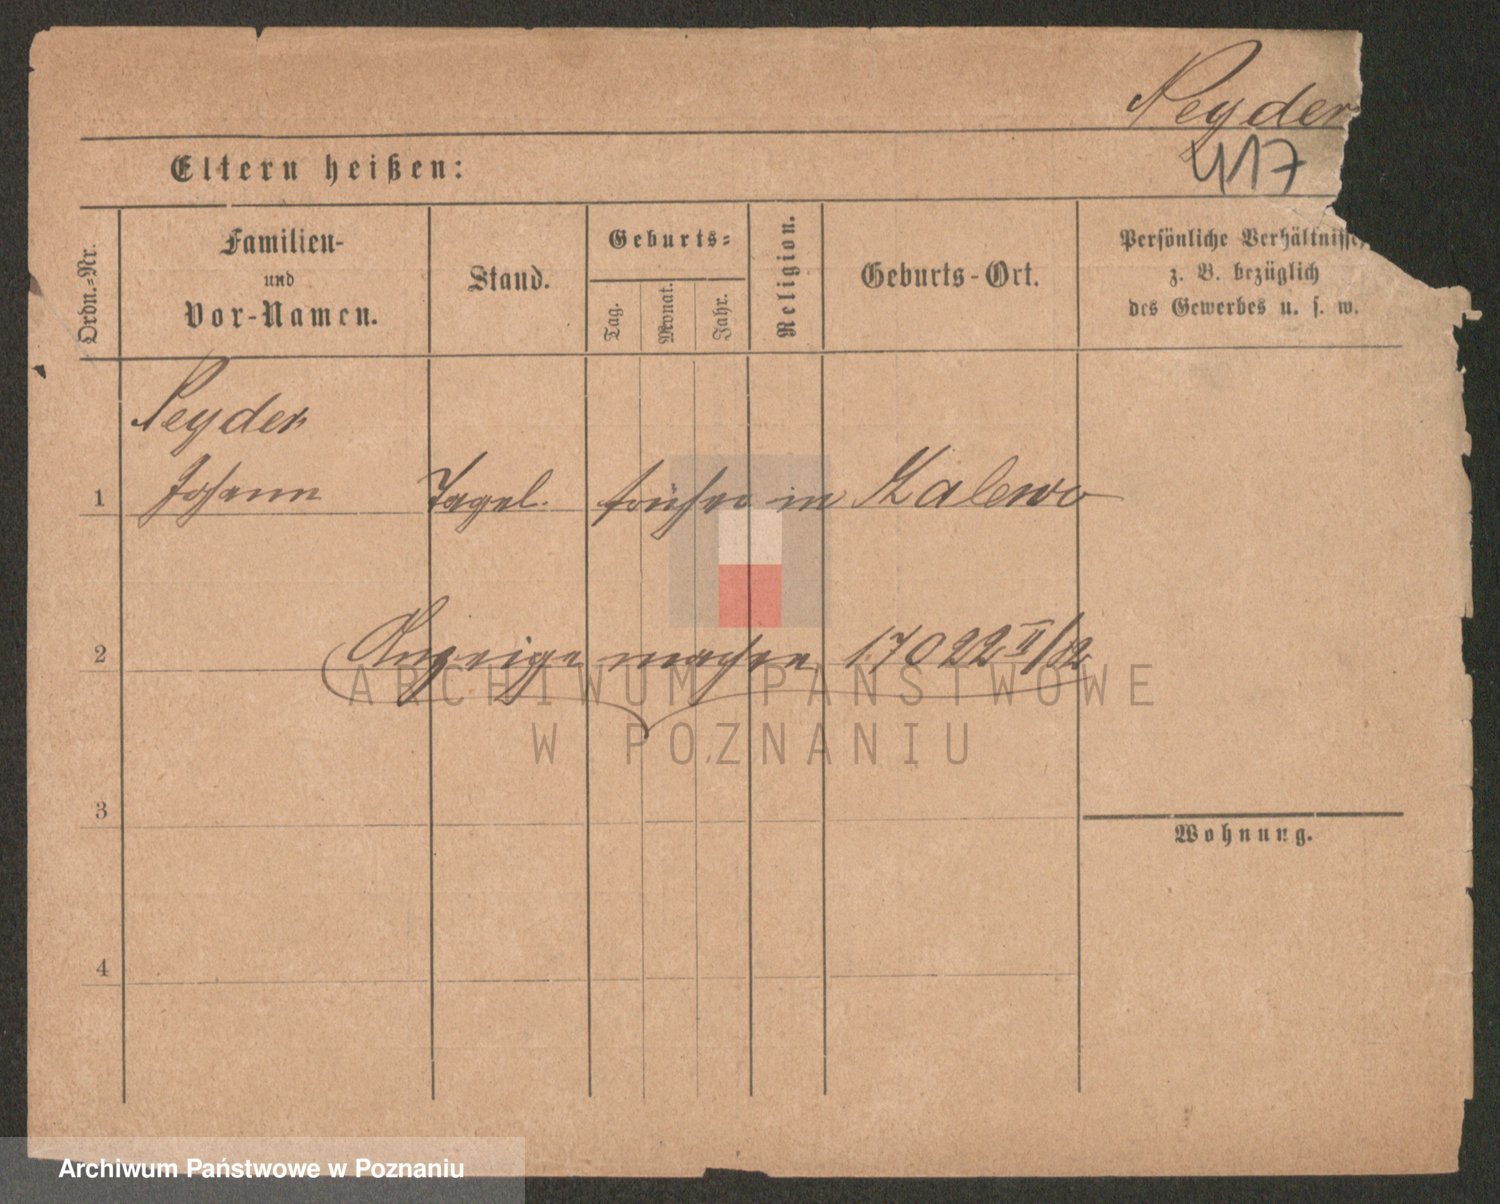 Peyder
417
Eltern heißen:
Ordn.-Nr.
Familien-
und
Vor-Namen.
Stand.
Geburts-
Tag.
Monat.
Jahr.
Religion.
Geburts-Ort.
Persönliche Verhältnisse,
z. B. bezüglich
des Gewerbes u. s. w.
Peyder
1 Johann Tagel. früher in Zalewo
2 Anzeige machen 17022 II/82
ARCHIWUM PAŃSTWOWE
W POZNANIU
3
Wohnung.
4
Archiwum Państwowe w Poznaniu